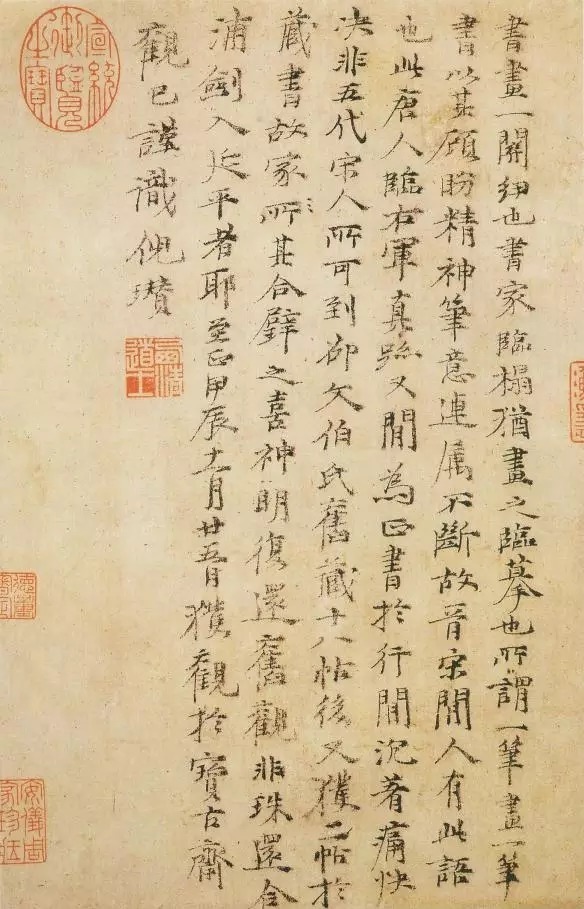 書畫一關紐也書家臨榻猶畫之臨摹也所謂一筆畫一筆
書以其顧盼精神筆意連属不斷故晉宋間人有此語
也此唐人臨右軍真跡又間為正書於行間沉著痛快
决非五代宋人所可到邵文伯氏舊藏十八帖後又獲二帖於
蔵書故家所其合璧之喜神明復還舊觀非珠還合
浦劍入延平者耶至正甲辰十一月廿五日獲觀於寶古齋
觀已謹識倪瓚
宣統御覽之寶
安儀周家珍藏